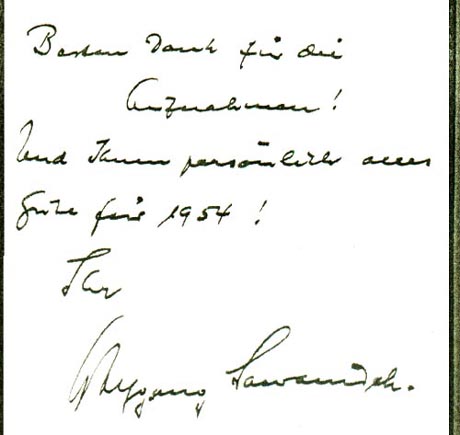 Besten Dank für die
Aufnahmen!
Und Ihnen persönlich alles
Gute für 1954!
Ihr
Wolfgang Sawallisch.